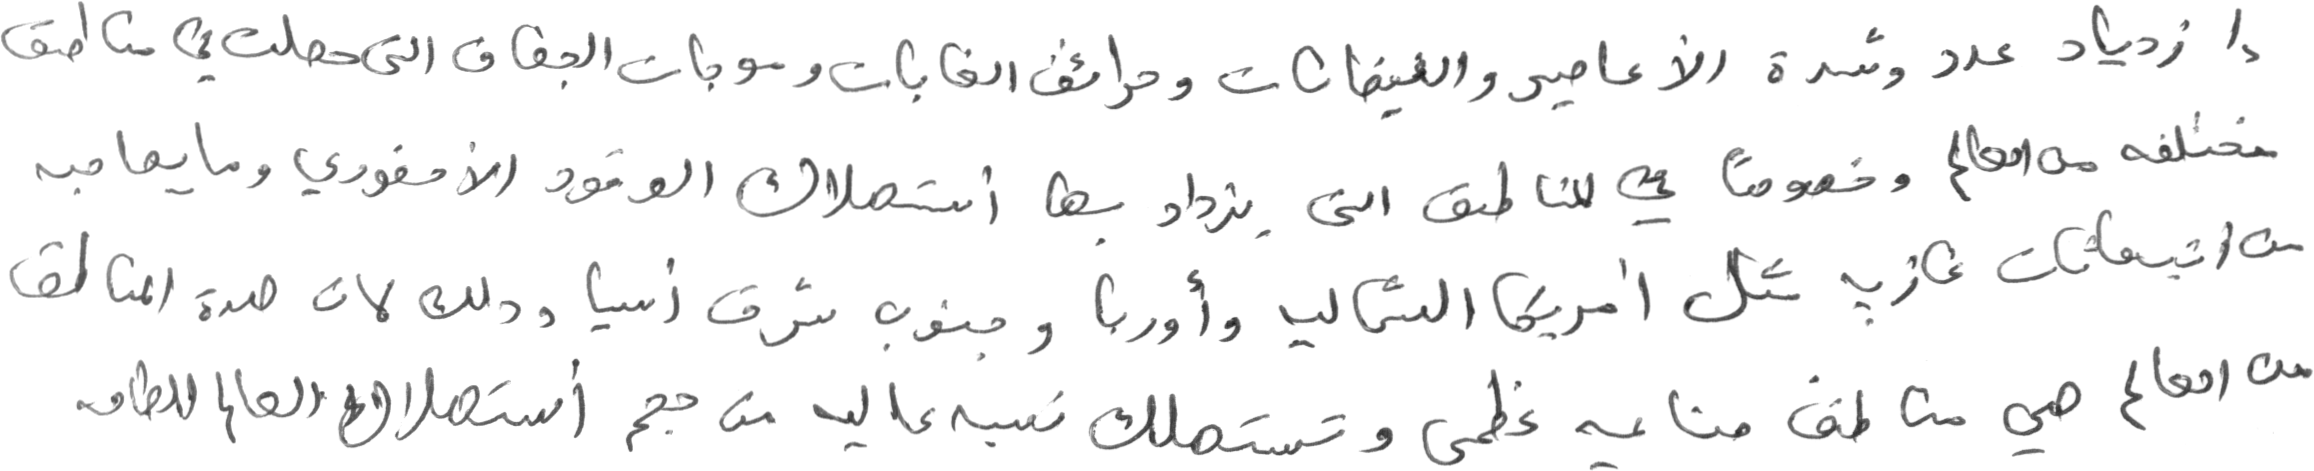 إزدياد عدد وشدة الأعاصير والفيضانات وحرائق الغابات وموجات الجفاف التى حصلت في مناطق
مختلفه من العالم وخصوصًا في المناطق التى يزداد بها أستهلاك الوقود الأحفوري وما يصاحبه
من انبعاثات غازيه مثل أمريكا الشماليه وأوربا وجنوب شرق أسيا وذلك لان هدة المناطق
من العالم هي مناطق صناعيه عظمى وتستهلك نسبه عاليه من حجم أستهلاك العالم للطاقه